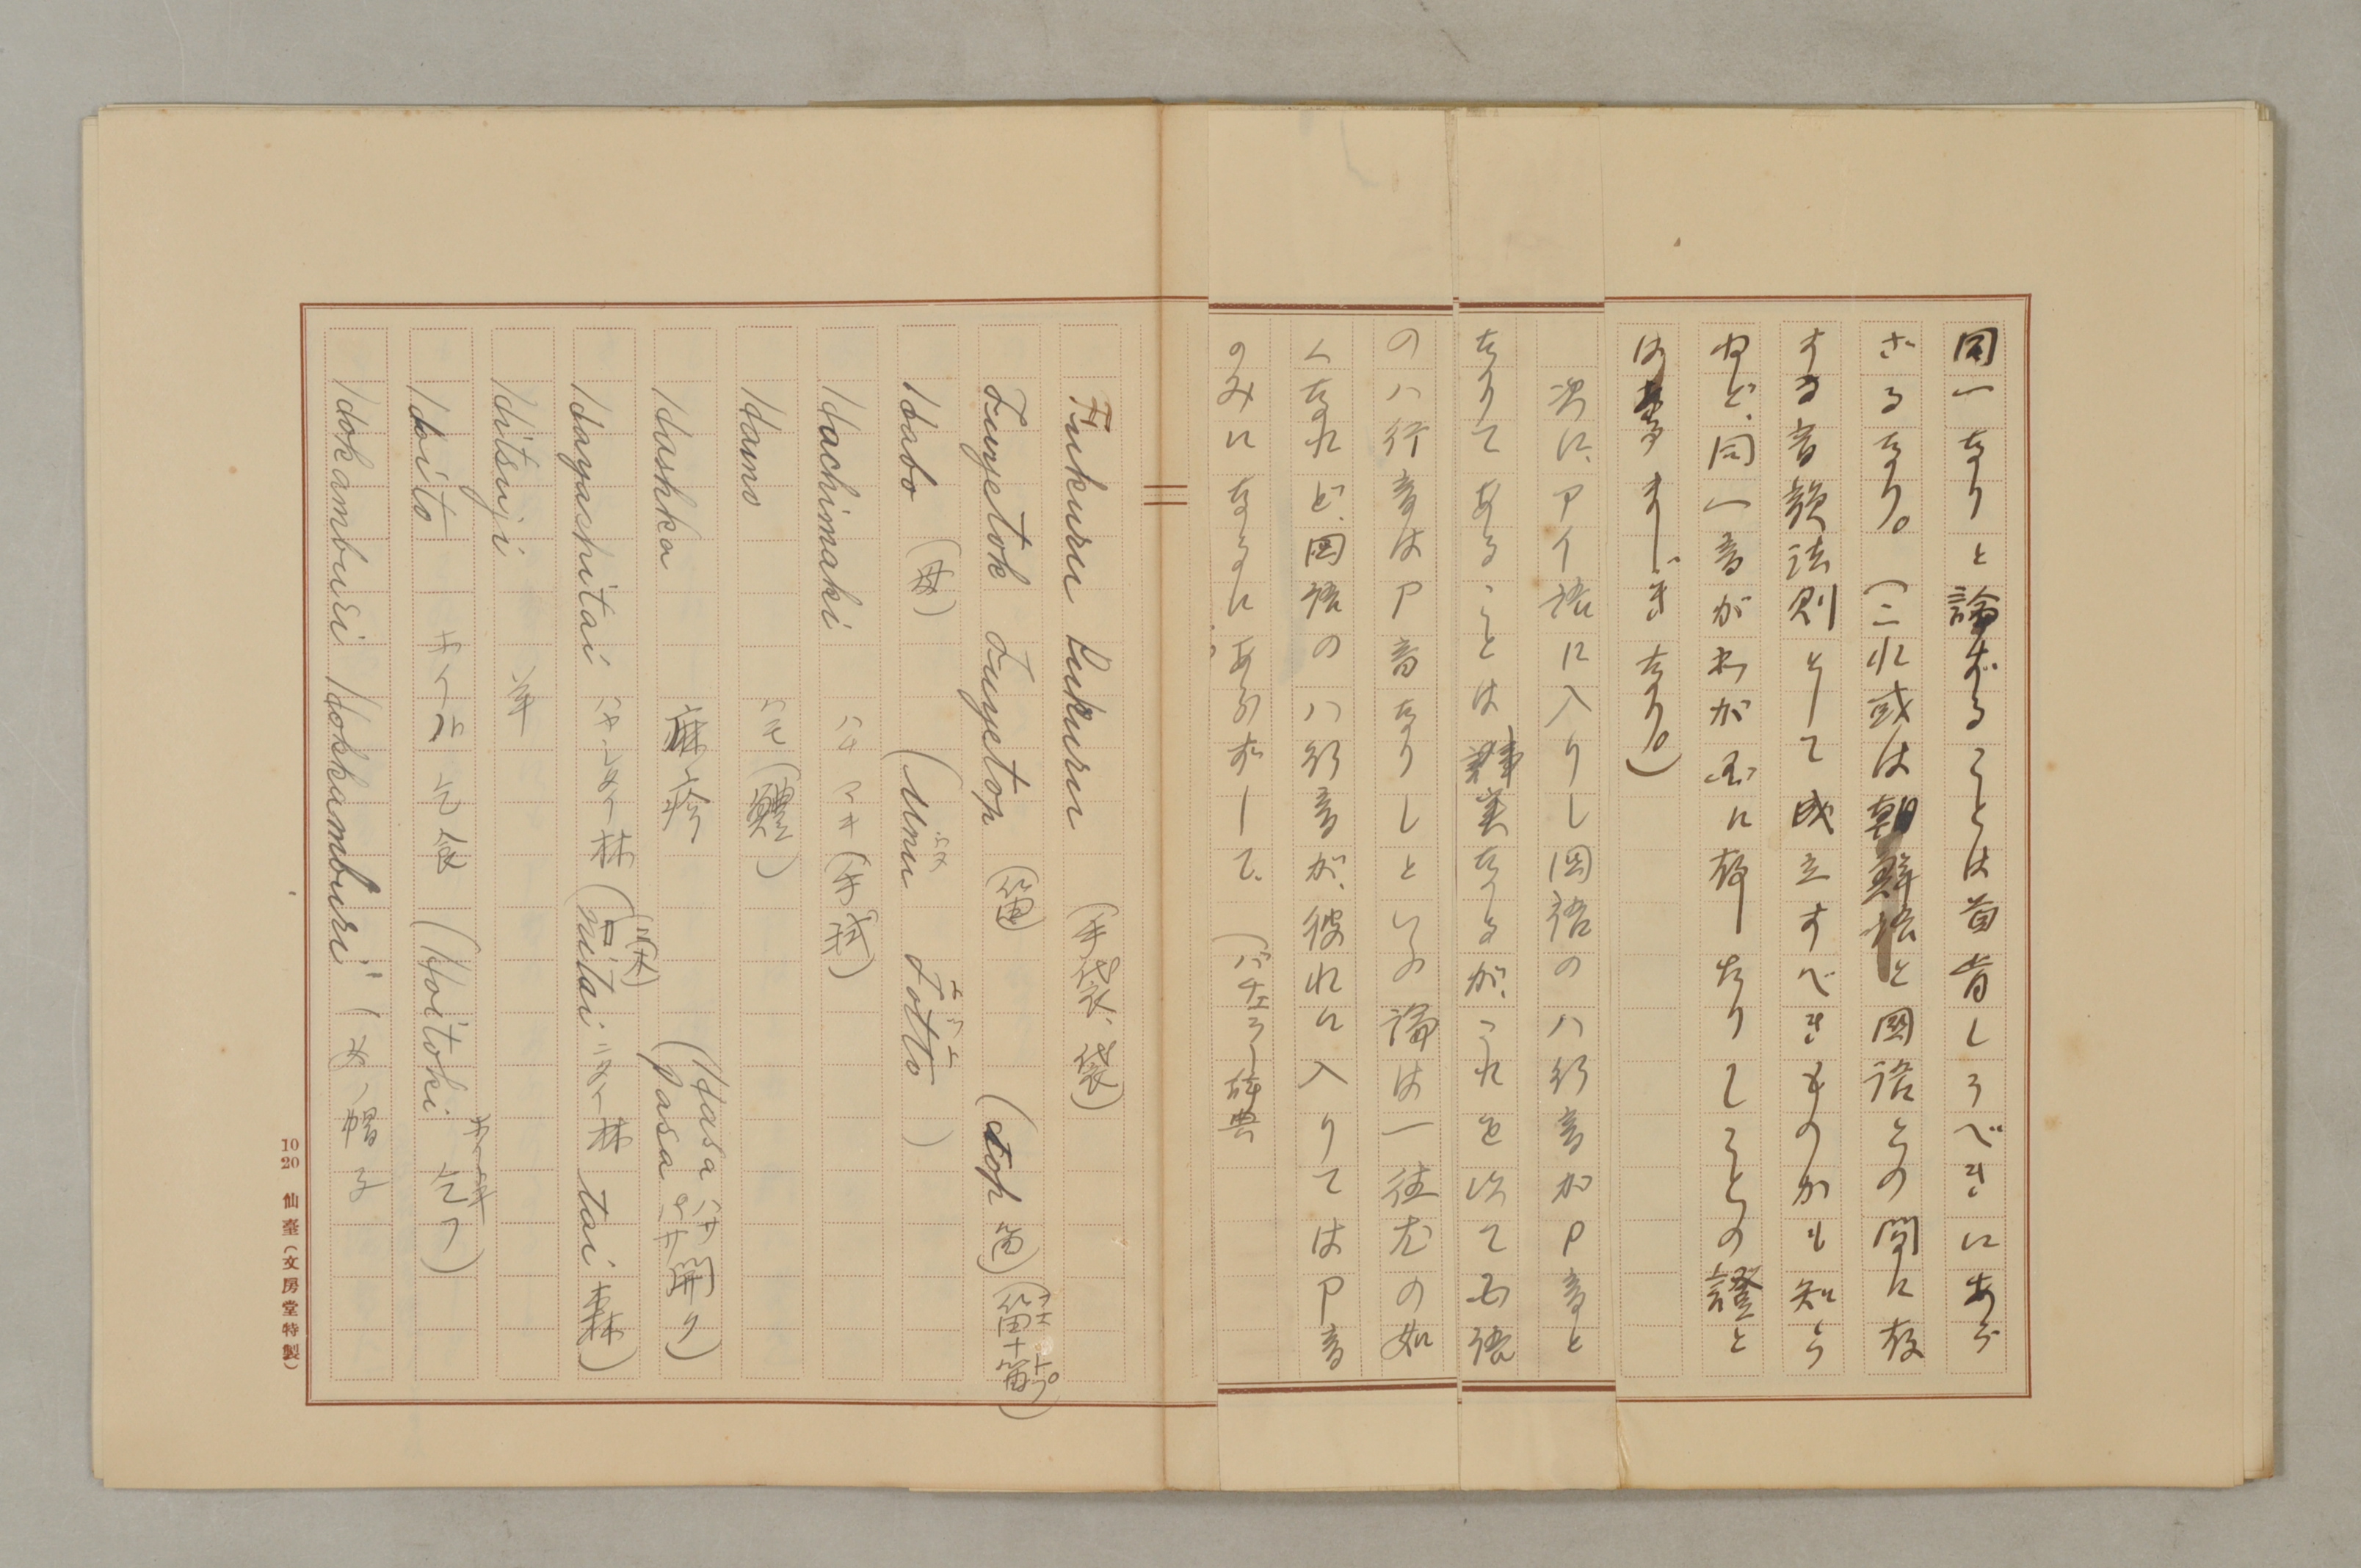 同一なりと論ずることは首肯しうべきにあら
ざるなり。(こは或は朝鮮語と國語との間に存
する音韻法則として成立すべきものかも知ら
ねど、同一音がわが國に存したりしことの證と
はなすまじきなり。)
次に、アイ語に入りし国語のハ行音がP音と
なりてあることは事実なるが、これを以て西語
のハ行音はP音なりしといふ論は一往尤の如
くなれど、国語のハ行音が、彼れに入りてはP音
のみになるにあらずして、(バチェラー辞典
Fukuru Pukuru (手袋、袋)
Fuyetok Fuyetop (笛) (top 笛) (笛フエ+笛トプ)
Habo (母) (Unu ウヌ Totto トット)
Hachimaki ハチマキ (手拭)
Hamo ハモ (鱧)
Hashka 麻疹 (Hasa ハサ Pasa パサ 開ク)
Hayashitai ハヤシタイ 林 (nitai ニタイ 林 tai 森)
Hitsuji 羊
Hoito ホイト 乞食 (Hoitoki ホイトキ 乞フ)
Hokamburi Hokkamburi 帽子
10 20 仙臺(文房堂特製)